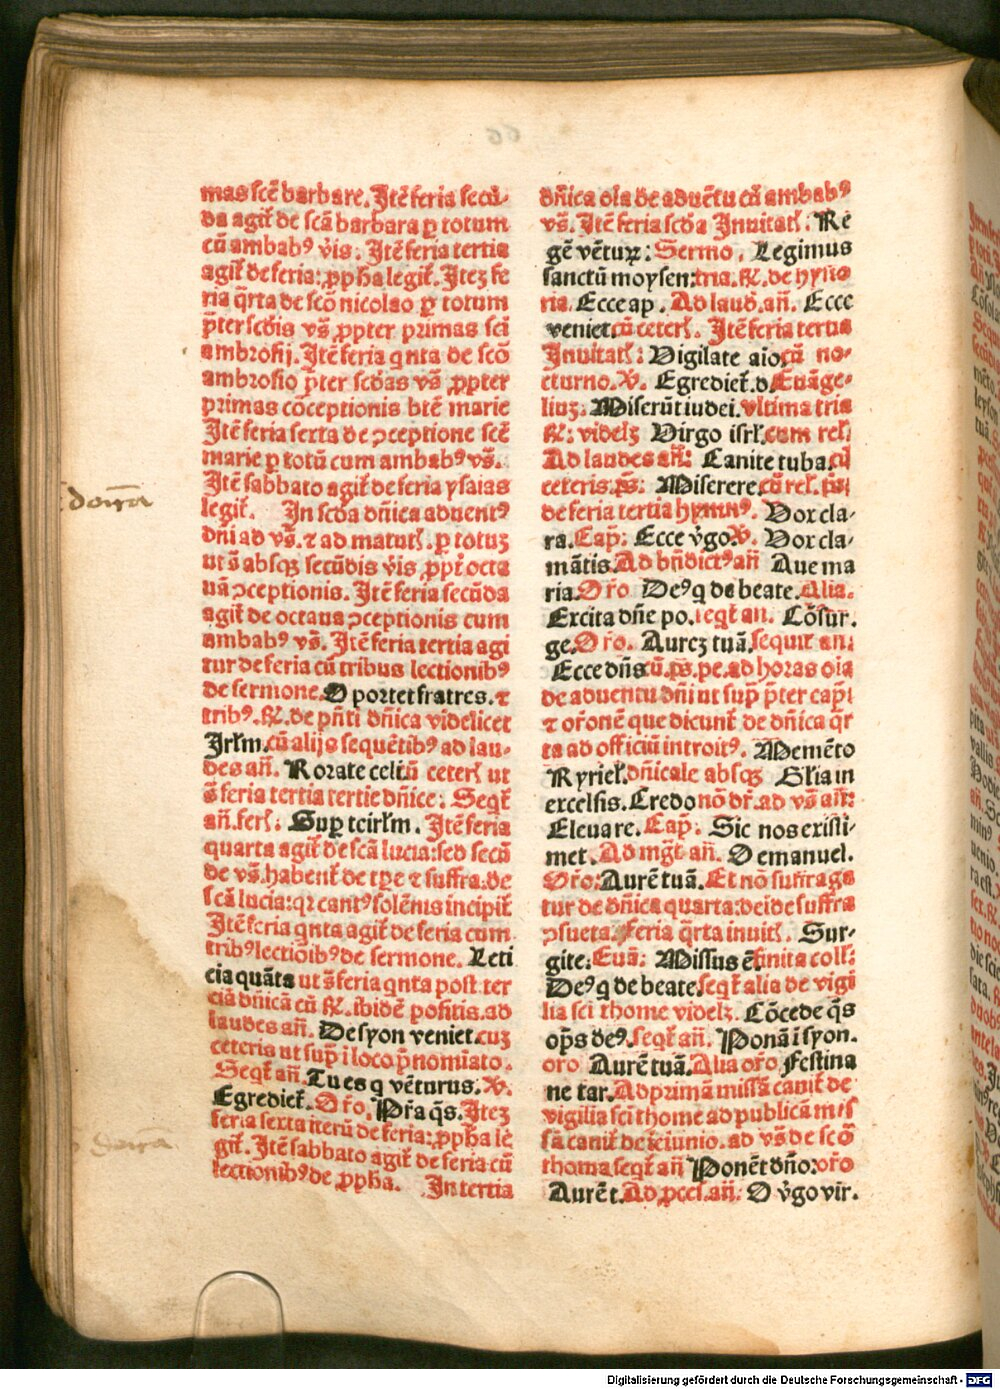 mas scē barbare. Itē feria secū-
da agit̄ de scā barbara ꝑ totum
cū ambabꝰ vīs. Itē feria tertia
agit̄ de feria: ꝓpha legit̄. Itez fe
ria q̄rta de scō nicolao ꝑ totum
p̄ter scd̄is vs̄ ꝓpter primas sci
ambrosij. Itē feria qnta de scō
ambrosio p̄ter scd̄as vs̄ ꝓpter
primas cōceptionis btē marie
Itē feria sexta de ꝯceptione scē
marie ꝑ totū cum ambabꝰ vs̄.
Itē sabbato agit̄ de feria ysaias
legit̄. In scd̄a dn̄ica aduentꝰ
dn̄i ad vs̄. ⁊ ad matut̄. ꝑ totuz
ut s̄ absqꝫ secūdis v̄is, ꝓpt̄ octa
uā ꝯceptionis. Itē feria secūda
agit̄ de octaua ꝯceptionis cum
ambabꝰ vs̄. Itē feria tertia agi
tur de feria cū tribus lectionibꝰ
de sermone. Oportet fratres. ⁊
tribꝰ. ℟. de pn̄ti dn̄ica videlicet
Irl̄m. cū alijs sequētibꝰ ad lau-
des an̄. Rorate celi cū ceteris ut
s̄ feria tertia tertie dn̄ice: Seqt̄
an̄. fer: Suꝑ te irl̄m. Itē feria
quarta agit̄ de scā lucia: sed secū
de vs̄. habent̄ de tꝑe ⁊ suffra: de
scā lucia: qꝛ cantꝰ solēnis incipit̄
Itē feria qnta agit̄ de feria cum
tribꝰ lectiōibꝰ de sermone. Leti
cia quāta ut s̄ feria qnta post ter
ciā dn̄icā cū ℟. ibidē positis. ad
laudes an̄. De syon veniet. cuz
ceteris ut sup̄ i loco p̄nomiato.
Seqt̄ an̄. Tu es q vēturus. ℣.
Egrediet̄. Or̄o. Pr̄a q̄s. Itez
feria sexta iterū de feria: ꝓpha le
git̄. Itē sabbato agit̄ de feria cū
lectionibꝰ de ꝓpha. In tertia
dn̄ica oīa de aduētu cū ambabꝰ
vs̄. Itē feria scd̄a Inuitat̄. Re
gē vētuꝝ: Sermo. Legimus
sanctū moysen: tria. ℟. de hysto
ria. Ecce ap. Ad laud̄. an̄. Ecce
veniet. cū ceter̄. Itē feria tertia
Inuitat̄: Vigilate aīo, cū no-
cturno. ℣. Egrediet̄. d. Euāge-
liuz: Miserūt iudei. vltima tria
℟: videlz Virgo isrl̄. cum rel̄.
Ad laudes an̄: Canite tuba. cū
ceteris. ps̄: Miserere. cū rel̄. ps̄
de feria tertia hymnꝰ. Vox cla-
ra. Cap̄: Ecce v̄go. ℣. Vox cla-
mātis. Ad bn̄dictꝰ an̄ Aue ma
ria. Or̄o Deꝰ q de beate. Alia.
Excita dn̄e po. seqt̄ an. Cōsur-
ge. Or̄o. Aureꝫ tuā. sequit̄ an:
Ecce dn̄s cū. ps̄. pe. ad horas oīa
de aduentu dn̄i ut sup̄ p̄ter cap̄l
⁊ or̄onē que dicunt̄ de dn̄ica q̄r
ta ad officiū introitꝰ. Memēto
Kyriel̄. dn̄icale absqꝫ Gl̄ia in
excelsis. Credo nō dr̄. ad vs̄ an̄:
Eleuare. Cap̄: Sic nos existi-
met. Ad mgt̄ an̄. O emanuel.
Or̄o: Aurē tuā. Et nō suffraga
tur de dn̄ica quarta: deide suffra
ꝯsueta. feria q̄rta inuit̄. Sur-
gite: Euā: Missus ē. finita coll̄:
Deꝰ q de beate. seqt̄ alia de vigi
lia sci thome videlz. Cōcede q̄s
op̄s deꝰ. seqt̄ an̄. Ponā i syon.
oro Aurē tuā. Alia or̄o Festina
ne tar. Ad primā missā canit̄ de
vigilia sci thome ad publicā mis
sā canit̄ de ieiunio. ad vs̄ de scō
thoma seqt̄ an̄ Ponēt dn̄o: or̄o
Aurē t. Ad ꝓcel. an̄. O v̄go vir.
Digitalisierung gefördert durch die Deutsche Forschungsgemeinschaft - DFG